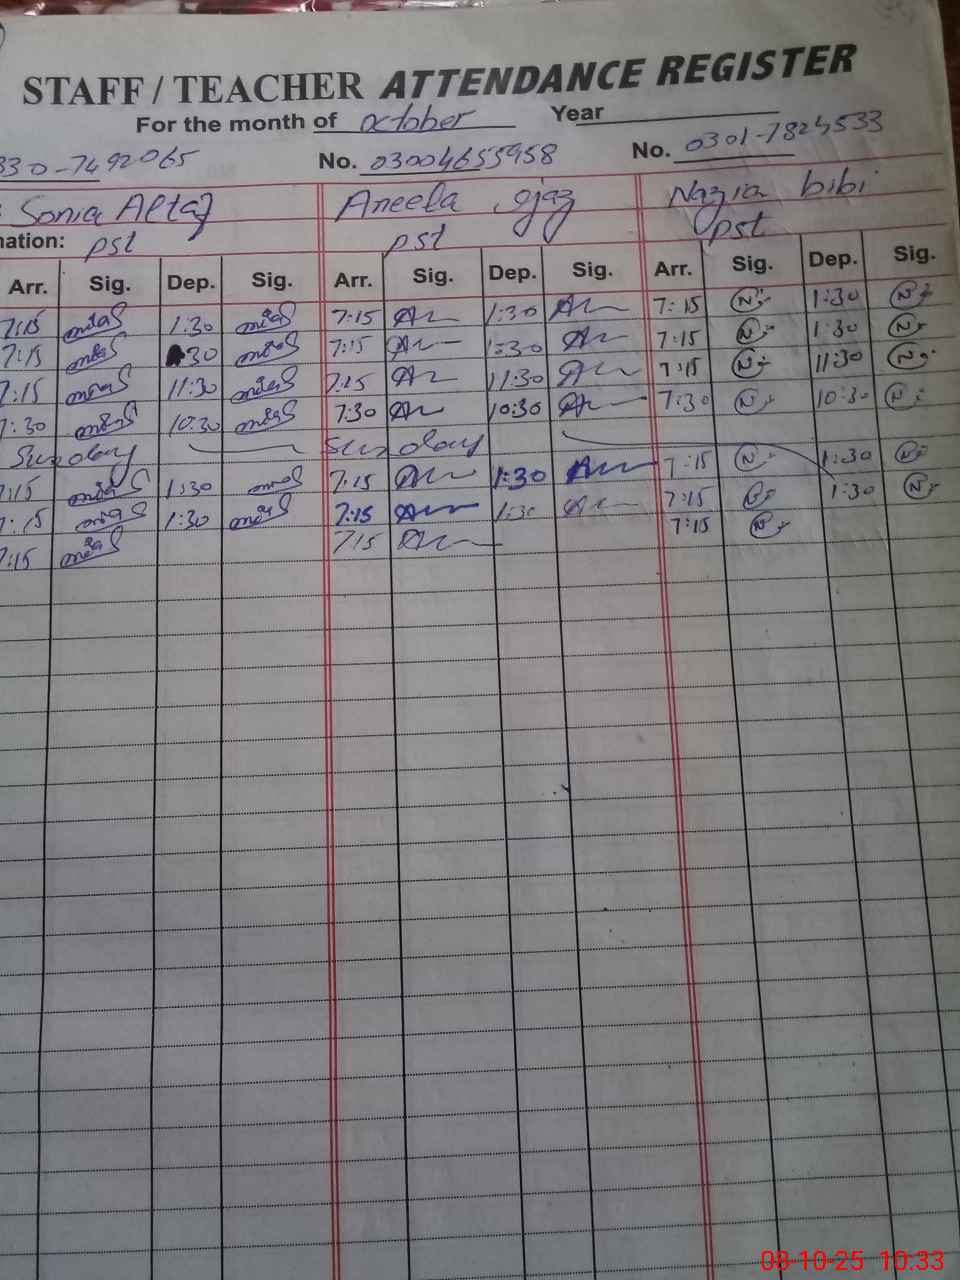 STAFF / TEACHER ATTENDANCE REGISTER
For the month of october Year
330-7492065 No. 03004655958 No. 0301-7824533
Sonia Altaf Aneela ijaz Nazia bibi
nation: pst pst pst
Arr. Sig. Dep. Sig. Arr. Sig. Dep. Sig. Arr. Sig. Dep. Sig.
7:15 1:30 7:15 1:30 7:15 N 1:30 N
7:15 30 7:15 1:30 7:15 N 1:30 N
7:15 11:30 7:15 11:30 7:15 N 11:30 N
7:30 10:30 7:30 10:30 7:30 N 10:30 N
Sunday Sunday
7:15 1:30 7:15 1:30 7:15 N 1:30 N
7:15 1:30 7:15 1:30 7:15 1:30 N
7:15 715 7:15 N
08-10-25 10:33